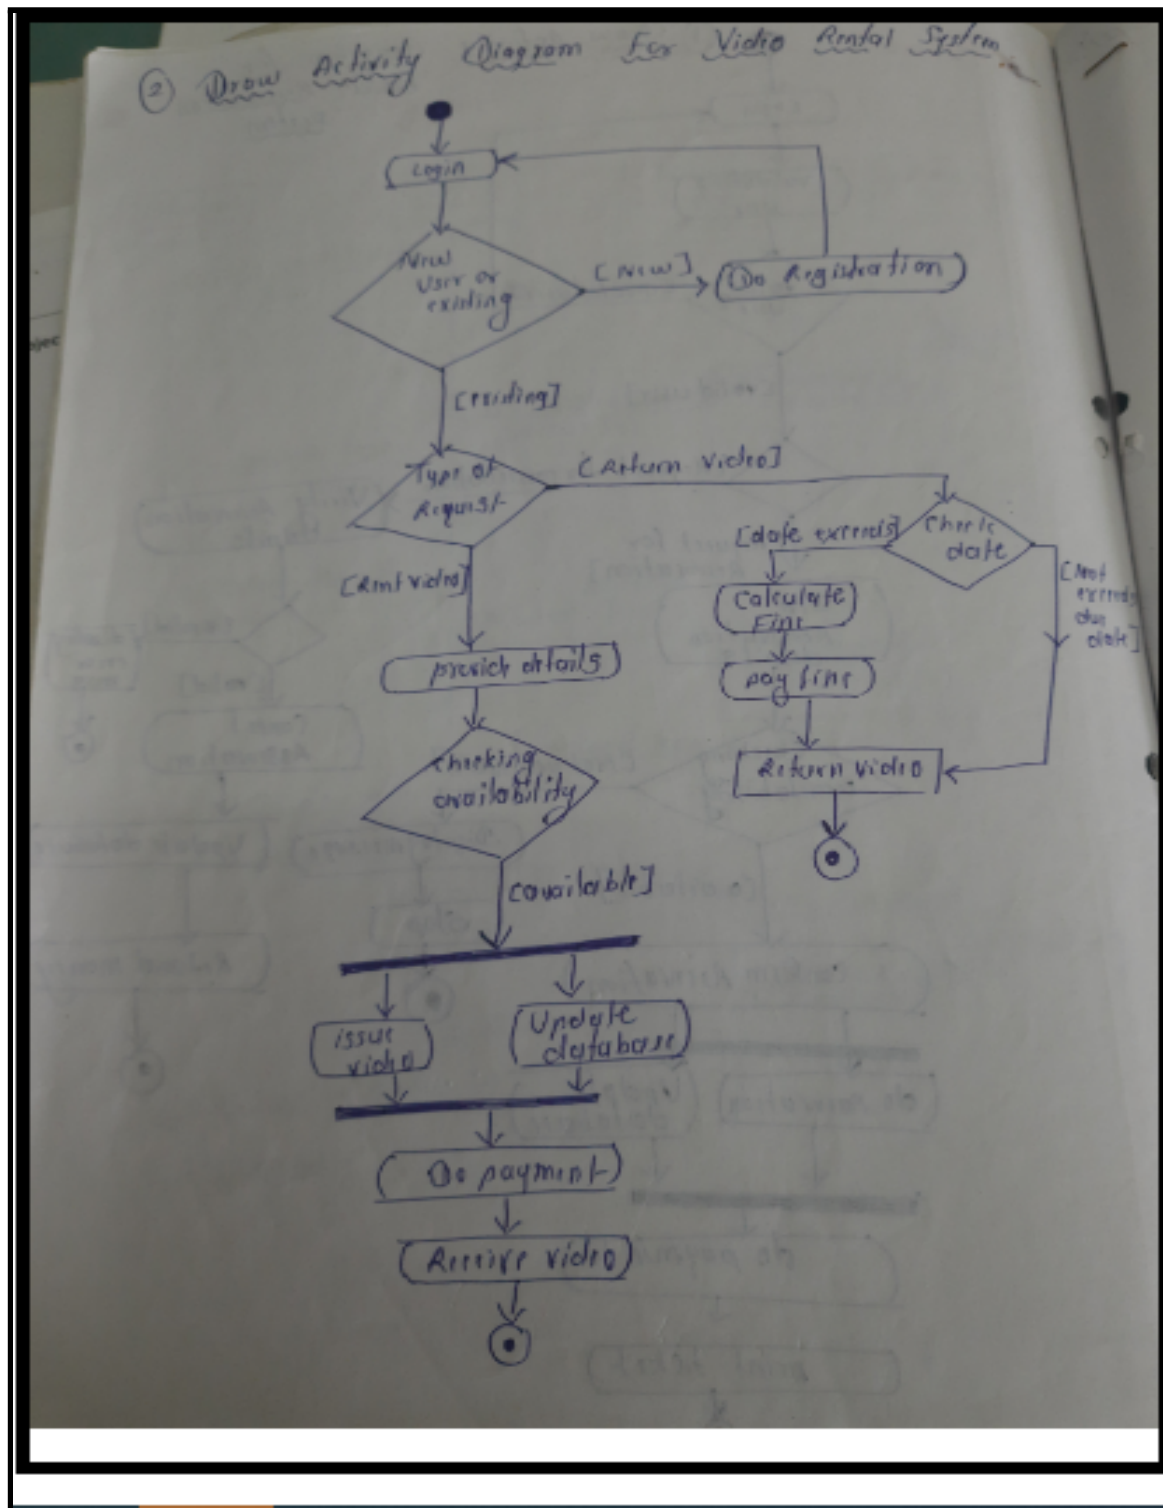 ② Draw Activity Diagram For Video Rental System
Login
New
User or
existing
[New]
Do Registration
[existing]
Type of
Request
[Return Video]
Check
date
[date exceeds]
[Not
exceeds
due
date]
[Rent video]
Calculate
Fine
pay fine
Return video
provide details
checking
availability
[available]
issue
video
Update
database
Do payment
Receive video
ojec